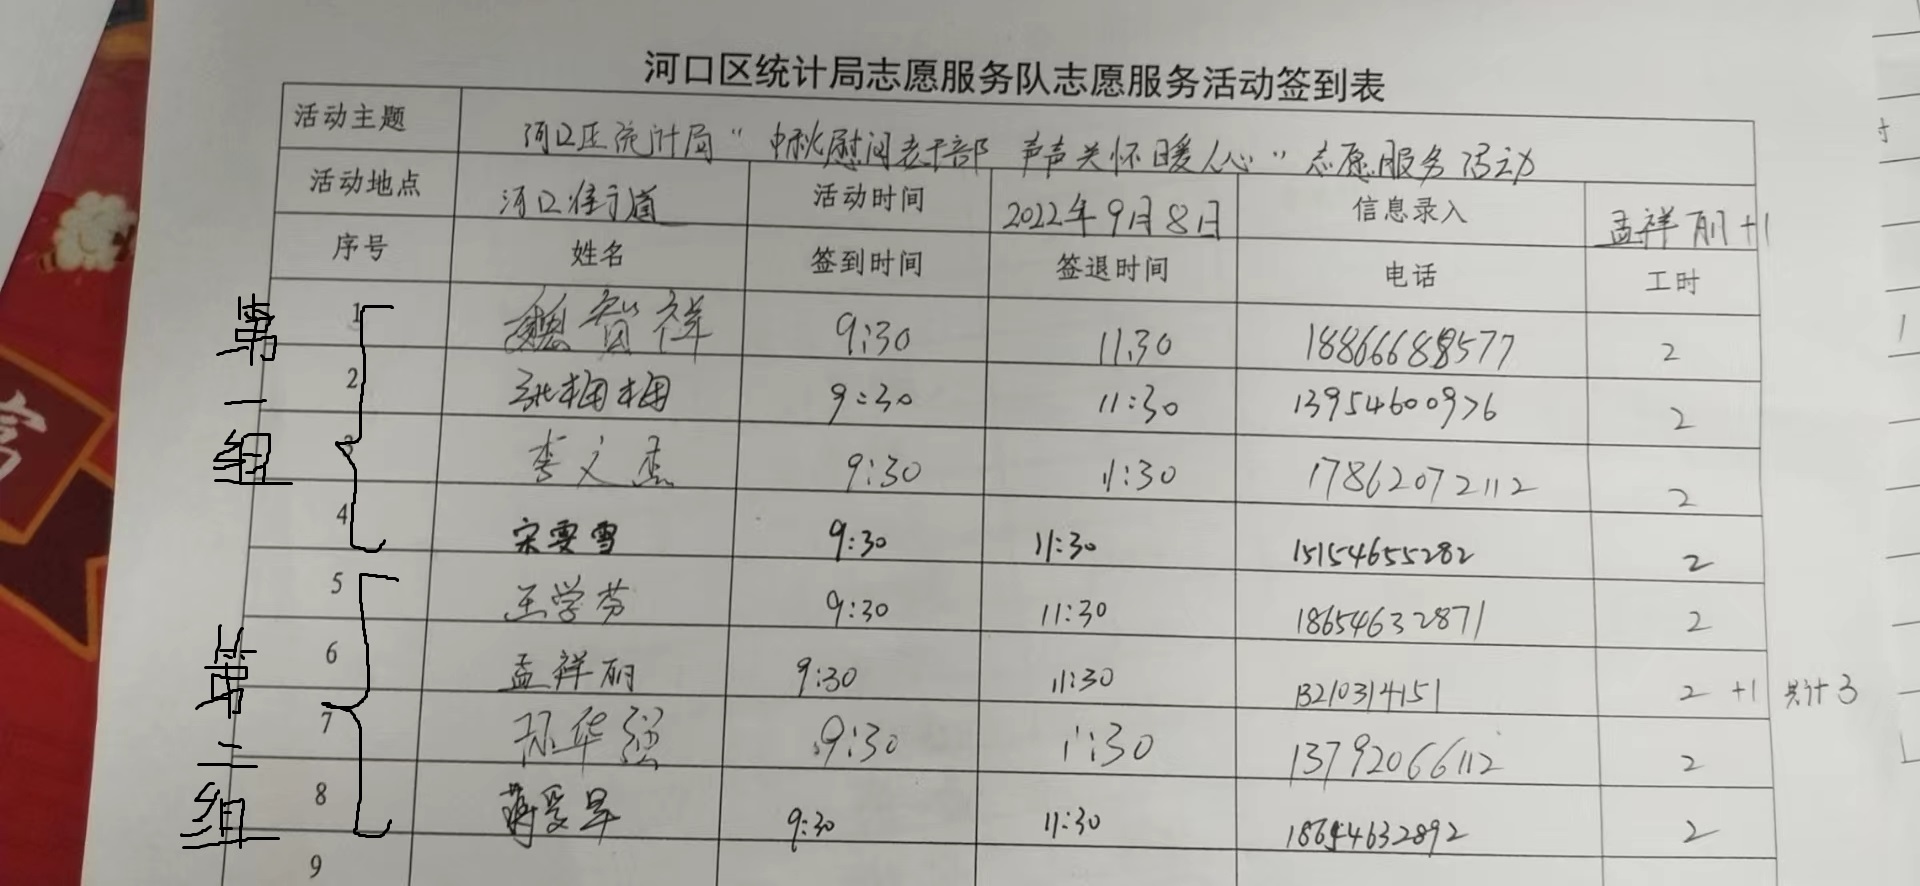 河口区统计局志愿服务队志愿服务活动签到表
活动主题 河口区统计局“中秋慰问老干部 声声关怀暖人心”志愿服务活动
活动地点 河口街道 活动时间 2022年9月8日 信息录入 孟祥丽+1
序号 姓名 签到时间 签退时间 电话 工时
第一组
1 魏智祥 9:30 11:30 18866688577 2
2 张梅梅 9:30 11:30 13954600976 2
3 李文杰 9:30 11:30 17862072112 2
4 宋雯雪 9:30 11:30 15154655282 2
第二组
5 王学芬 9:30 11:30 18654632871 2
6 孟祥丽 9:30 11:30 13210314151 2 +1 共计3
7 华 9:30 11:30 13792066112 2
8 9:30 11:30 18654632892 2
9